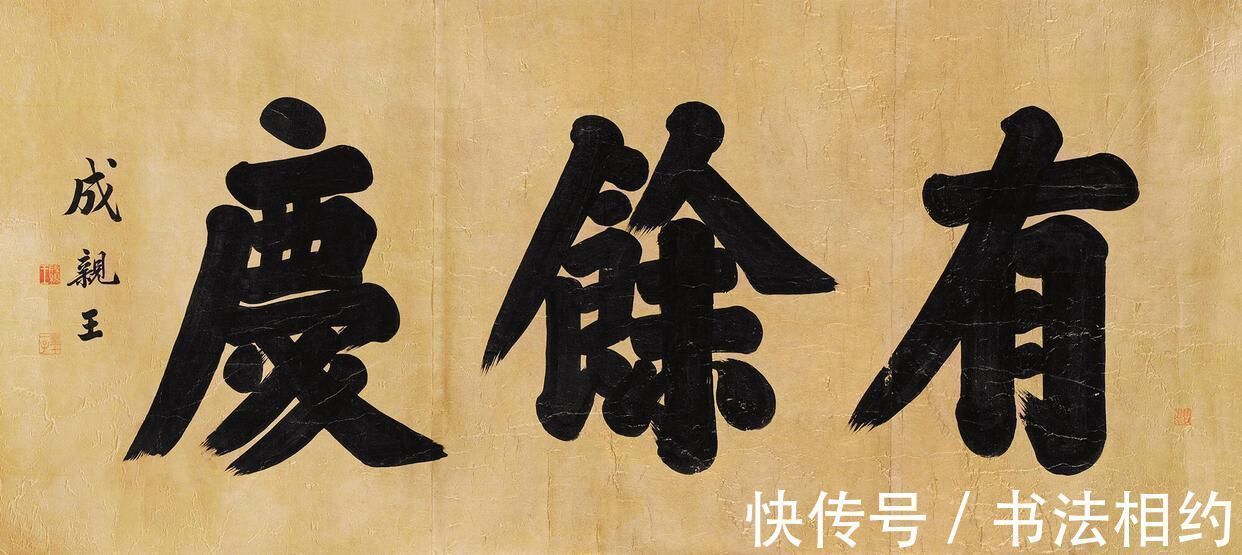 有餘慶
成親王
快传号 / 书法相约